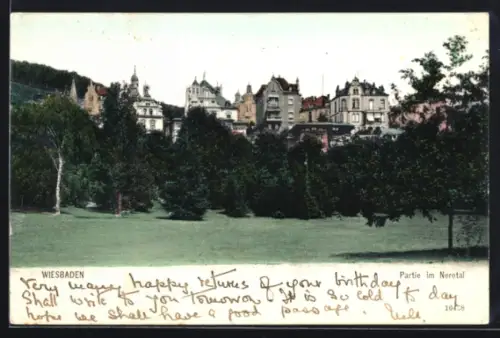 WIESBADEN
Partie im Nerotal
Very many happy returns of your birthday
Shall write to you tomorrow It is so cold to day
hope we shall have a good passage.